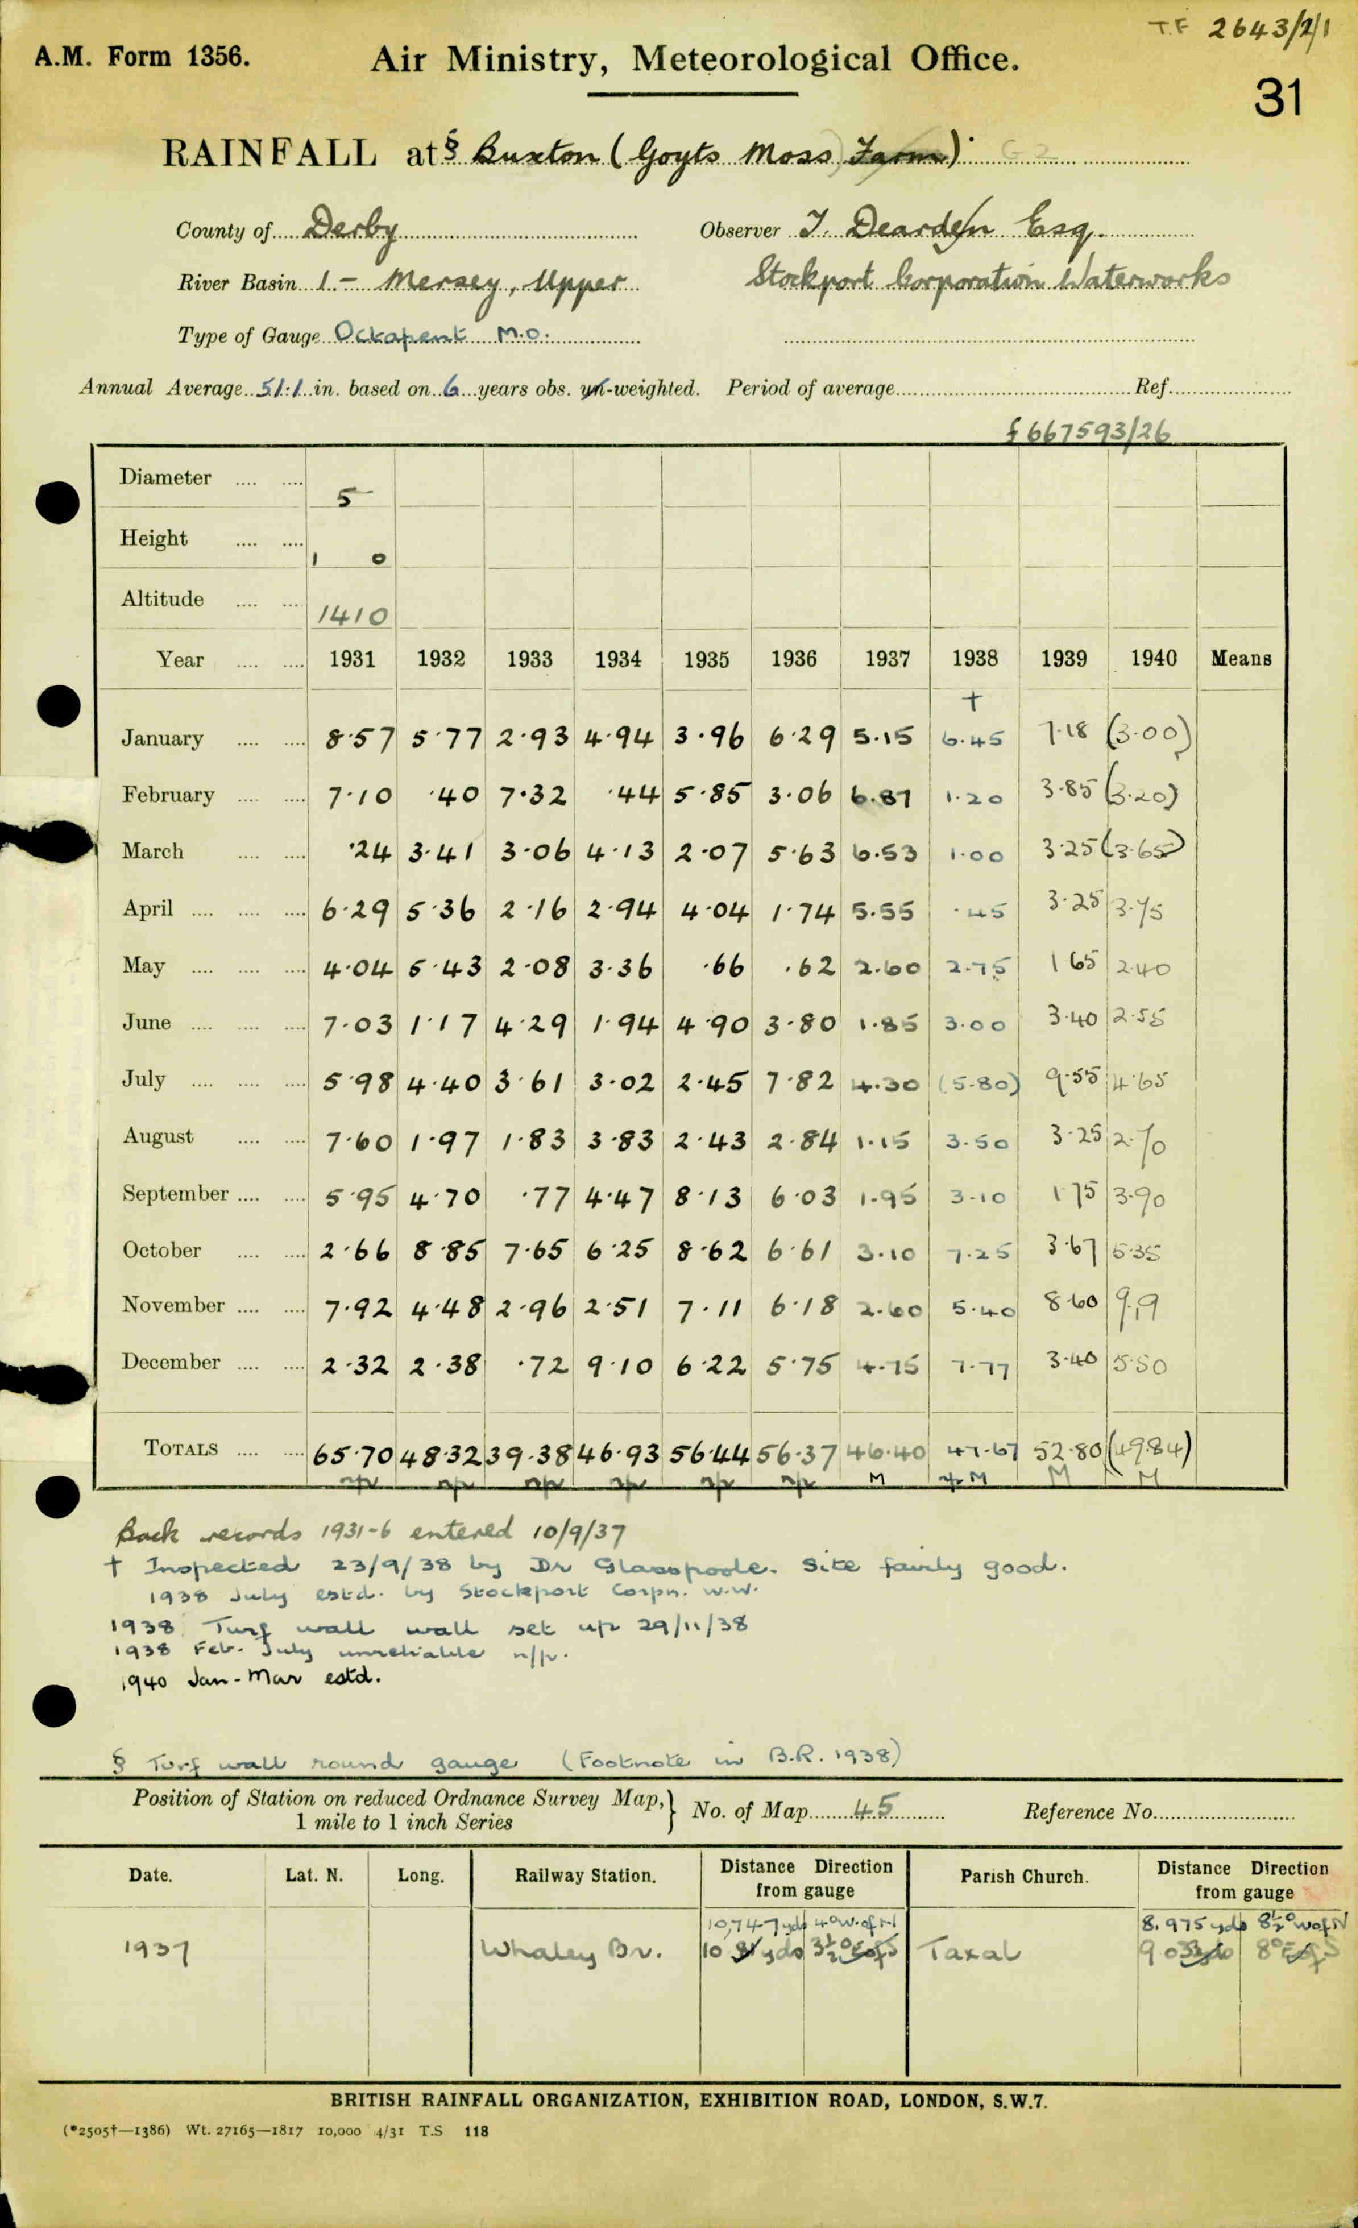 T.F 2643/2/1
A.M. Form 1356. Air Ministry, Meteorological Office.
31
RAINFALL at § Buxton (Goyts Moss) Farm) G2
County of Derby Observer T. Dearden Esq.
River Basin 1.- Mersey, Upper Stockport Corporation Waterworks
Type of Gauge Octapent M.O.
Annual Average 51.1 in. based on 6 years obs. un-weighted. Period of average Ref.
£667593/26
Diameter 5
Height 1 0
Altitude 1410
Year 1931 1932 1933 1934 1935 1936 1937 1938 1939 1940 Means
†
January 8.57 5.77 2.93 4.94 3.96 6.29 5.15 6.45 7.18 (3.00)
February 7.10 .40 7.32 .44 5.85 3.06 6.87 1.20 3.85 (3.20)
March .24 3.41 3.06 4.13 2.07 5.63 6.53 1.00 3.25 (3.65)
April 6.29 5.36 2.16 2.94 4.04 1.74 5.55 .45 3.25 3.75
May 4.04 5.43 2.08 3.36 .66 .62 2.60 2.75 1.65 2.40
June 7.03 1.17 4.29 1.94 4.90 3.80 1.85 3.00 3.40 2.55
July 5.98 4.40 3.61 3.02 2.45 7.82 4.30 (5.80) 9.55 4.65
August 7.60 1.97 1.83 3.83 2.43 2.84 1.15 3.50 3.25 2.70
September 5.95 4.70 .77 4.47 8.13 6.03 1.95 3.10 1.75 3.90
October 2.66 8.85 7.65 6.25 8.62 6.61 3.10 7.25 3.67 5.35
November 7.92 4.48 2.96 2.51 7.11 6.18 2.60 5.40 8.60 9.19
December 2.32 2.38 .72 9.10 6.22 5.75 4.75 7.77 3.40 5.50
TOTALS 65.70 48.32 39.38 46.93 56.44 56.37 46.40 47.67 52.80 (49.84)
n/p n/p n/p n/p n/p n/p M n/p M M M
Back records 1931-6 entered 10/9/37
† Inspected 23/9/38 by Dr Glasspoole. Site fairly good.
1938 July estd. by Stockport Corpn. W.W.
1938 Turf wall wall set up 29/11/38
1938 Feb. July unreliable n/p.
1940 Jan-Mar estd.
§ Turf wall round gauge (Footnote in B.R. 1938)
Position of Station on reduced Ordnance Survey Map, 1 mile to 1 inch Series } No. of Map 45 Reference No.
Date. Lat. N. Long. Railway Station. Distance Direction from gauge Parish Church. Distance Direction from gauge
10,747 yds 4° W. of N 8,975 yds 8½° W of N
1937 Whaley Br. yds 3½° E of S Taxal 8° E of S
BRITISH RAINFALL ORGANIZATION, EXHIBITION ROAD, LONDON, S.W.7.
(*2505†—1386) Wt. 27165—1817 10,000 4/31 T.S 118